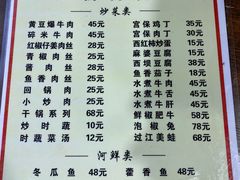 炒菜类
黄豆爆牛肉 45元 宫保鸡丁 35元
碎米牛肉 45元 宫保肉丁 38元
红椒仔姜肉丝 28元 西红柿炒蛋 15元
青椒肉丝 25元 麻婆豆腐 15元
酱肉丝 28元 西坝豆腐 38元
鱼香肉丝 25元 鱼香茄子 18元
回锅肉 25元 水煮牛肉 48元
小炒肉 25元 水煮牛舌 48元
干锅系列 68元 水煮牛肝 48元
炒时蔬 10元 鲜椒肥牛 58元
时蔬菜汤 12元 泡椒兔 78元
过江美蛙 68元
河鲜类
冬瓜鱼 48元 藿香鱼 48元